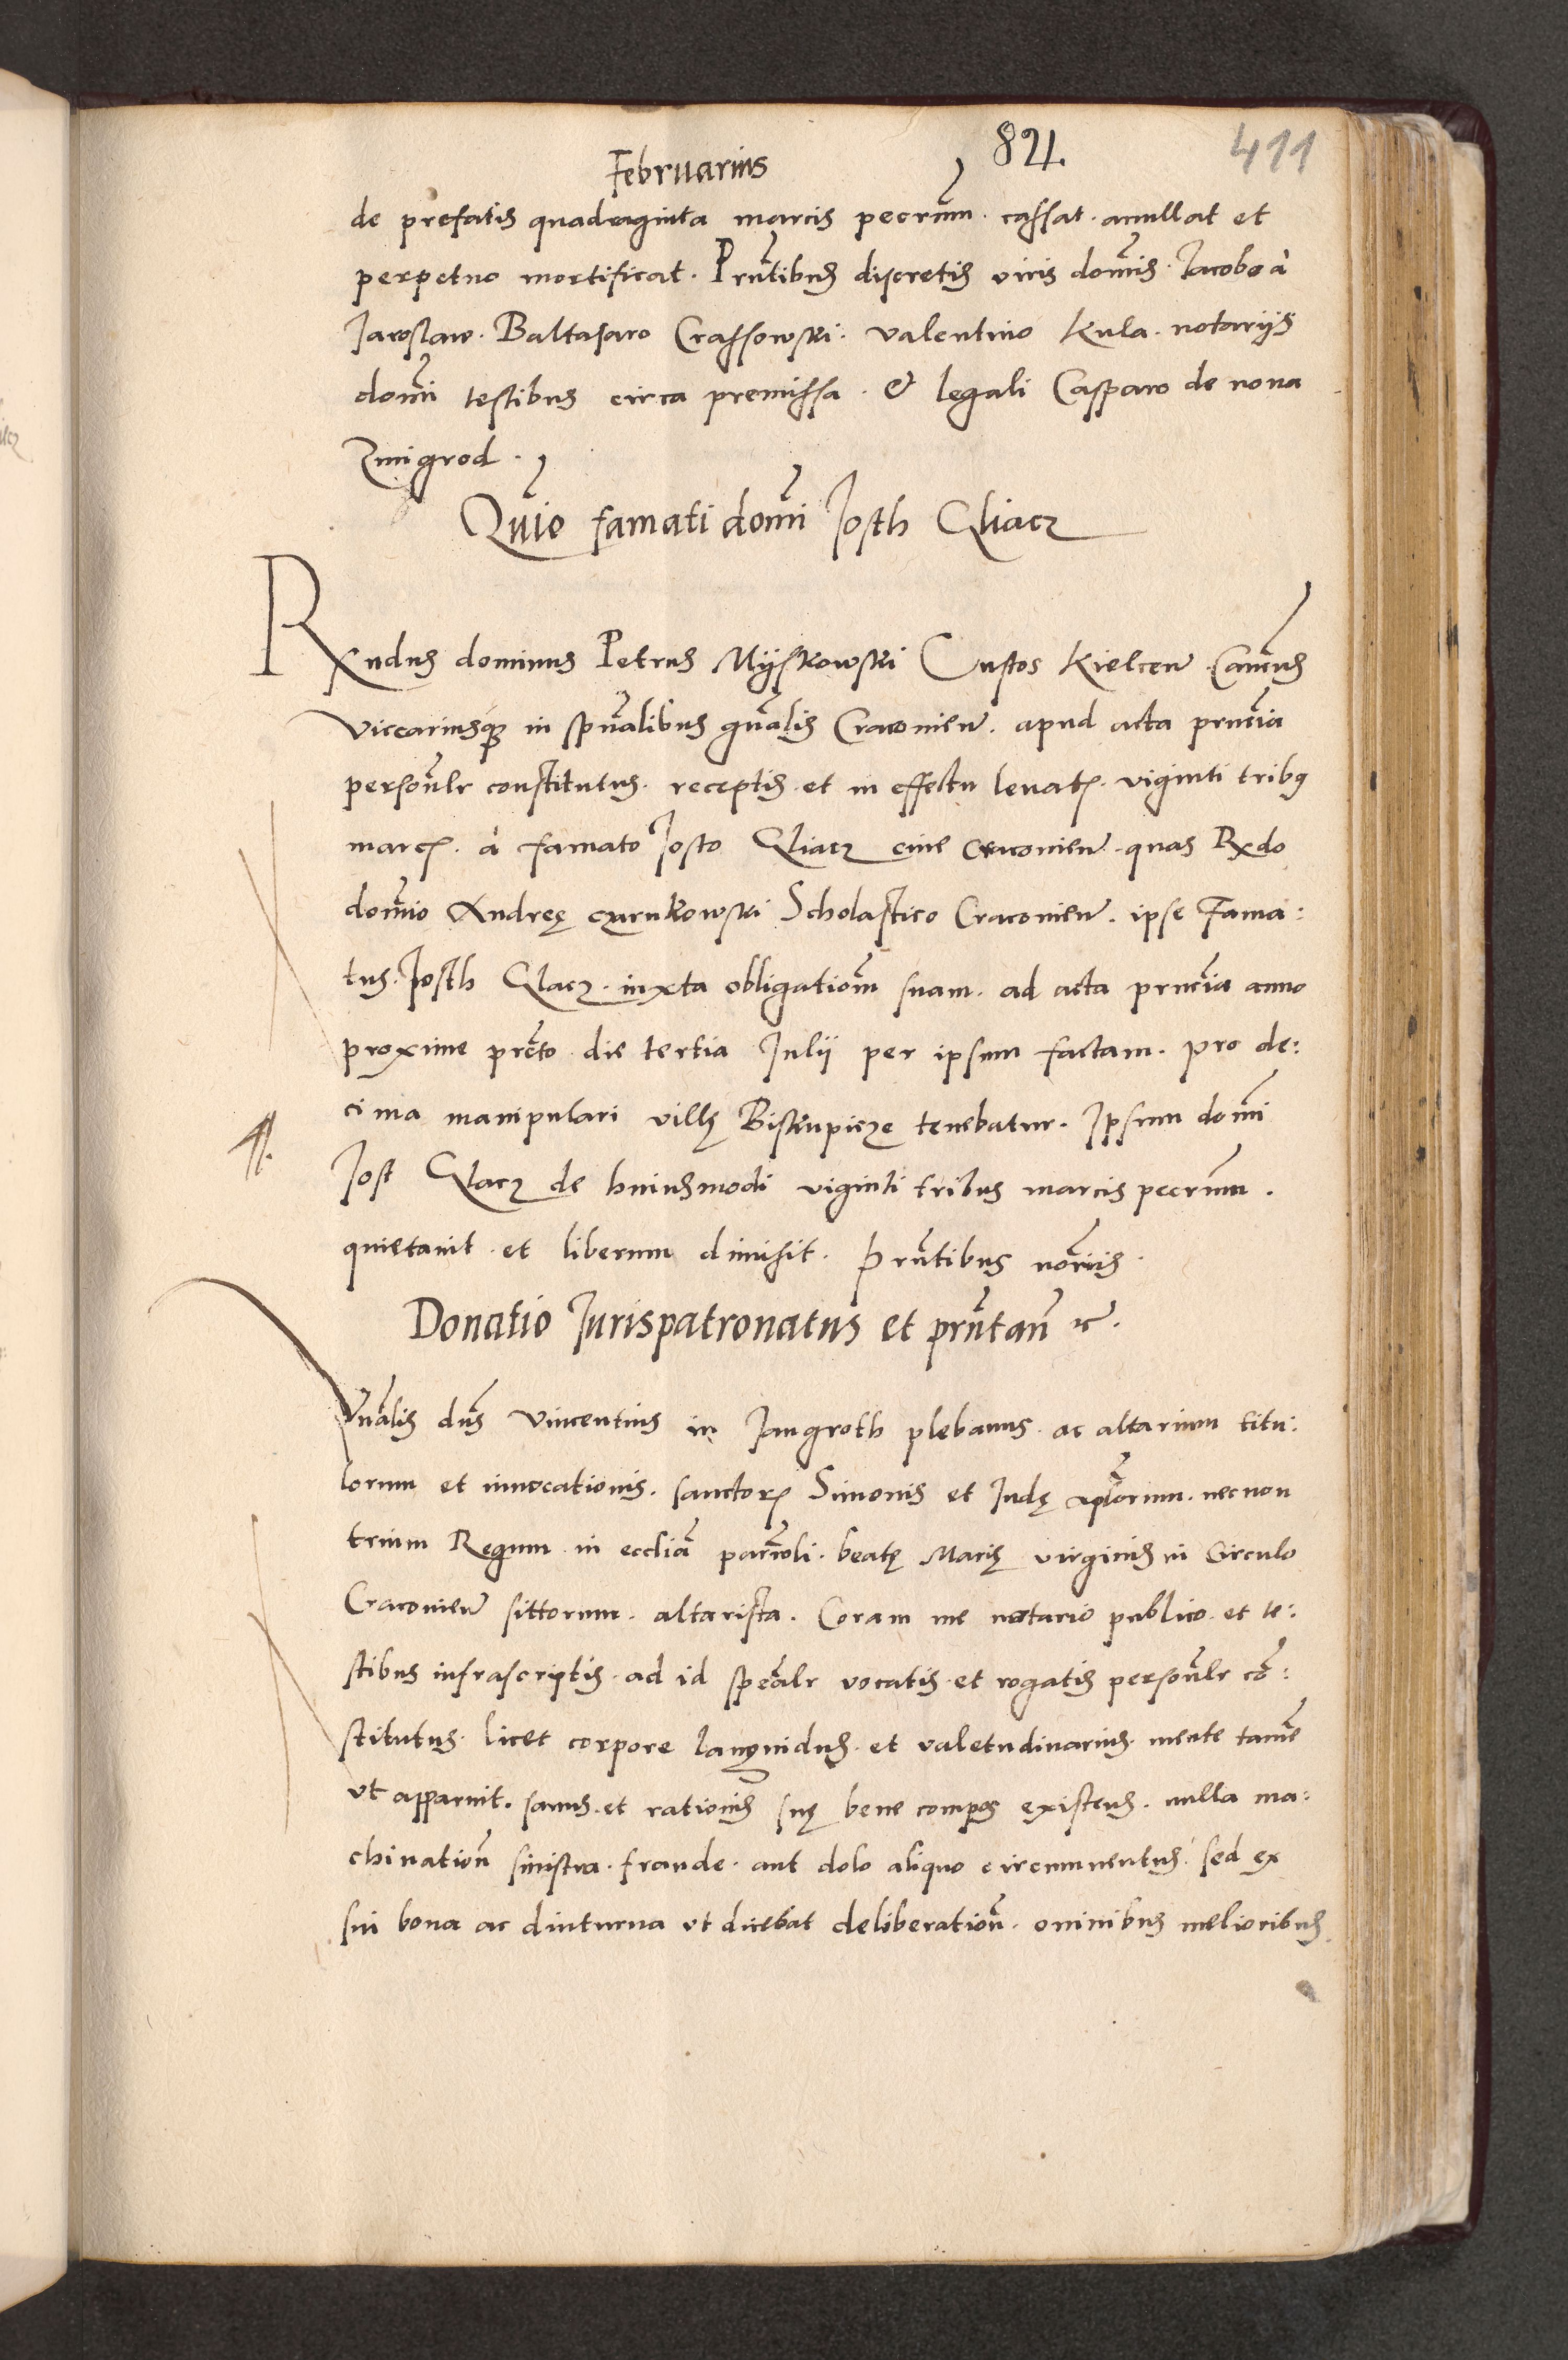 Februarius 821. 411
de prefatis quadraginta marcis pecrũm. cassat. anullat et
perpetuo mortificat. Prñtibus discretis viris domĩs. Jacobo à
Jaroslaw. Baltasaro Crassowski. Valentino Kula. notariis
domĩ testibus circa premissa. & legali Casparo de nova
Zmigrod.
Quie famati domĩ Josth Gliacz
Rxndus dominus Petrus Mÿskowski Custos Kielcen̄ Canc̃us
Viccariusq̧ in spũalibus gñalis Cracouien̄. apud acta prñcia
persoñlr constitutus. receptis. et in effectu levatꝭ. viginti tribꝰ
marcꝭ. à famato Josto Gliacz ciue Cracouien̄. quas Rxdo
domĩo Andreę czarnkowski Scholastico Cracouien̄. ipse Fama:
tus. Josth Glacz. iuxta obligatioñm suam. ad acta prñcia anno
proxime pretc̃o die tertia Julii per ipsum factam. pro de:
cima manipulari villę Biskupicze tenebatur. Ipsum domĩ
Jost Glacz de huiusmodi viginti tribus marcis pecrũm.
quietauit. et liberum dimisit. Prñtibus nor̃iis.
Donatio Jurispatronatus et prñtan̄ ꝛc̄.
Vñalis dñs Vincentius in Jangroth plebanus. ac altarium titu:
lorum et inuocationis. sanctorꝭ Simonis et Judę aplõrum. necnon
trium Regum in eccliã parrõli. beatę Marię virginis in Circulo
Cracouien̄ sittorum. altarista. Coram me notario publico. et te:
stibus infrascriptis. ad id specãlr vocatis. et rogatis persoñlr cõ:
stitutus. licet corpore languidus. et valetudinarius. mente tamẽ
vt apparuit. sanus. et rationis suę bene compos existens. nulla ma:
chinatioñ sinistra. fraude. aut dolo aliquo circumuentus. sed ex
sui bona ac diuturna vt dicebat deliberatioñ. ominibus melioribus